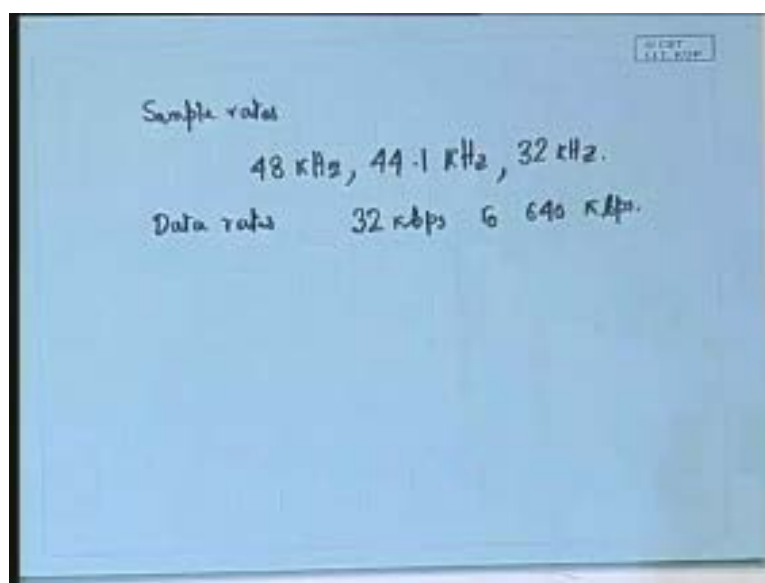 © CET
I.I.T. KGP
Sample rates
48 KHz, 44.1 KHz, 32 KHz.
Data rates 32 Kbps to 640 Kbps.